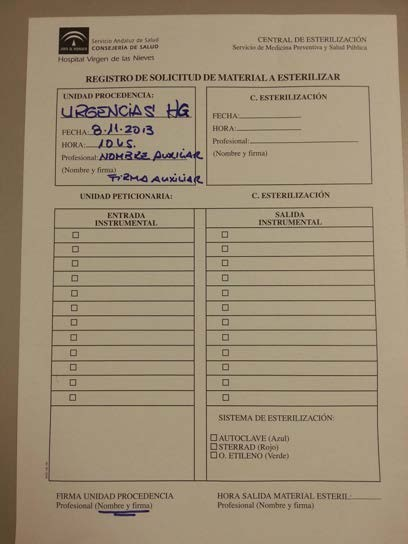 JUNTA DE ANDALUCIA
Servicio Andaluz de Salud
CONSEJERÍA DE SALUD
Hospital Virgen de las Nieves
CENTRAL DE ESTERILIZACIÓN
Servicio de Medicina Preventiva y Salud Pública
REGISTRO DE SOLICITUD DE MATERIAL A ESTERILIZAR
UNIDAD PROCEDENCIA:
URGENCIAS HG
FECHA: 8.11.2013
HORA: 10 h.
Profesional: NOMBRE AUXILIAR
(Nombre y firma) FIRMA AUXILIAR
C. ESTERILIZACIÓN
FECHA:
HORA:
Profesional:
(Nombre y firma)
UNIDAD PETICIONARIA:
C. ESTERILIZACIÓN
ENTRADA INSTRUMENTAL
SALIDA INSTRUMENTAL
SISTEMA DE ESTERILIZACIÓN:
AUTOCLAVE (Azul)
STERRAD (Rojo)
O. ETILENO (Verde)
FIRMA UNIDAD PROCEDENCIA
Profesional (Nombre y firma)
HORA SALIDA MATERIAL ESTERIL:
Profesional (Nombre y firma)